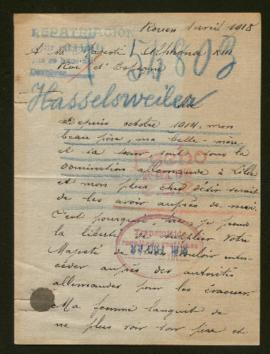 Rouen 1 avril 1918
REPATRIACION
A Sa Majesté
53803
Roi d'Espagne
Hasselsweiler
Depuis octobre 1914, mon
beau père, ma belle-mère
et sa sœur sont sous la
domination allemande à Lille
et mon plus cher désir serait
de les avoir auprès de moi.
C'est pourquoi je prends
la liberté votre
Majesté de vouloir inter-
céder auprès des autorités
allemandes pour les évacuer.
Ma femme languit de
ne plus voir son père et